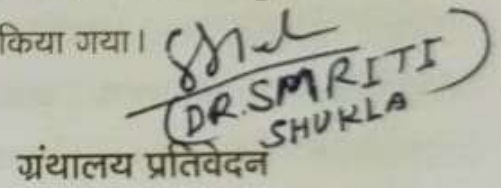 किया गया।
(DR. SMRITI
SHUKLA)
ग्रंथालय प्रतिवेदन